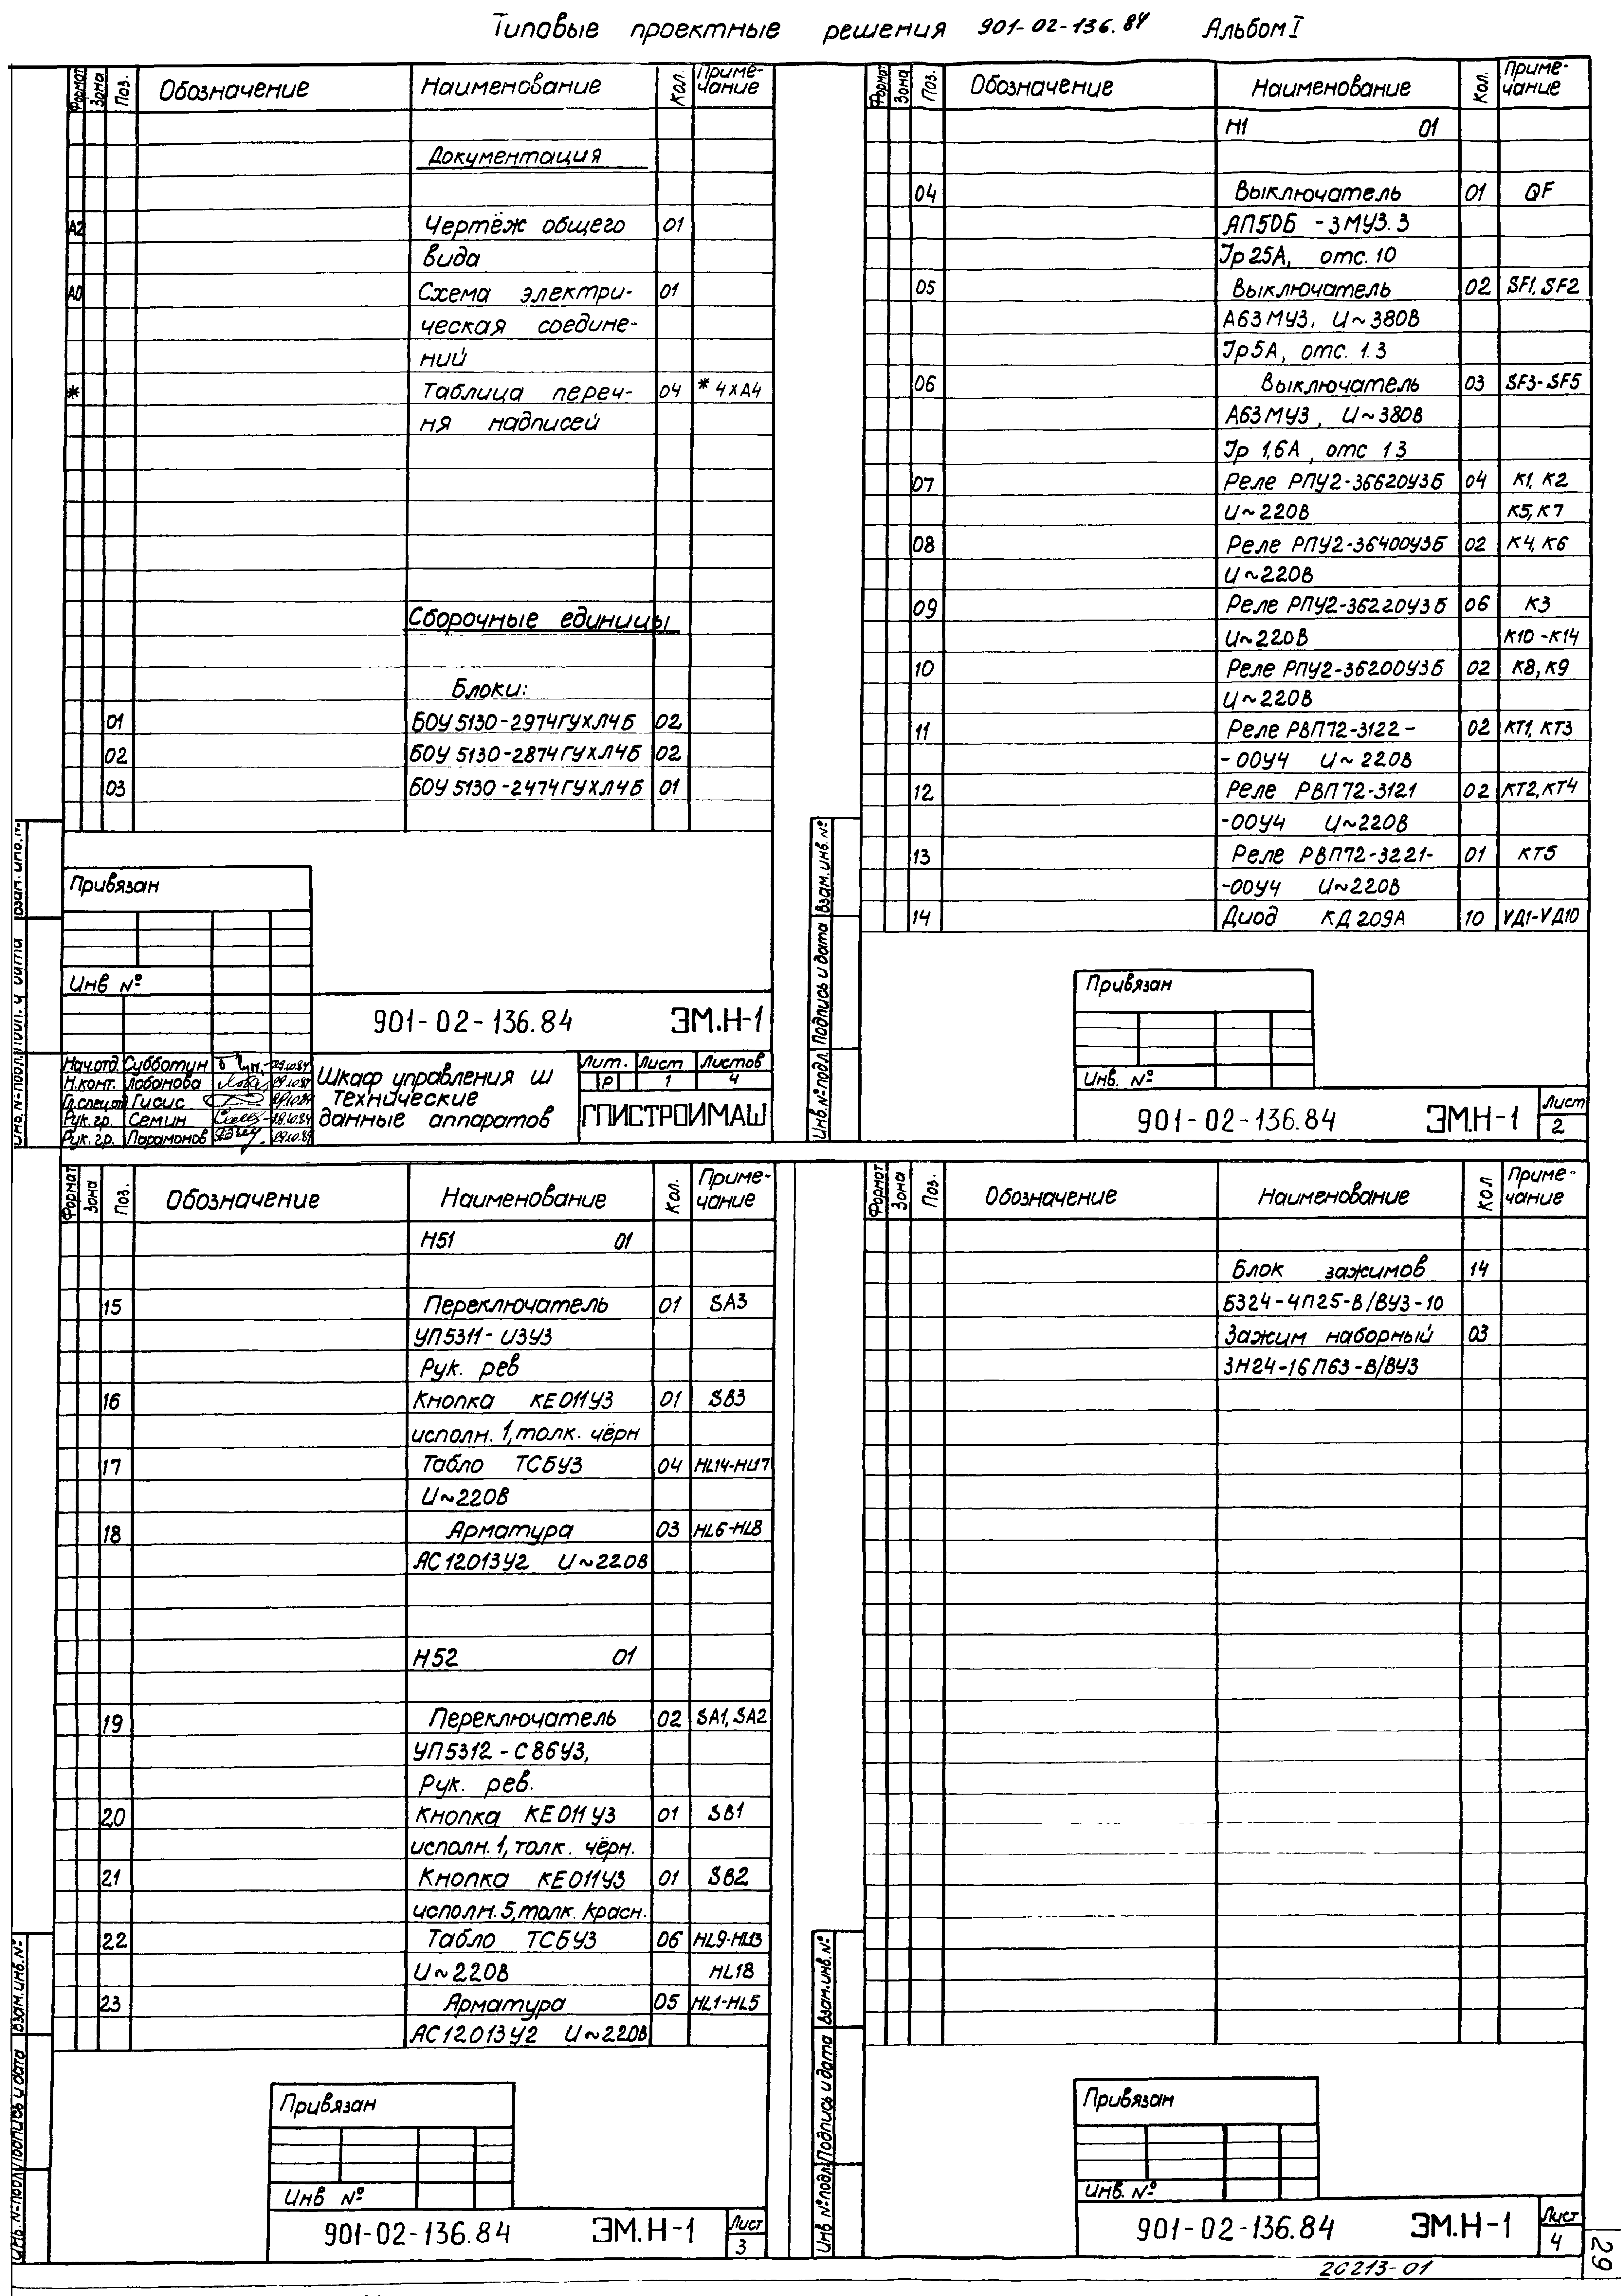 Типовые проектные решения 901-02-136.84 Альбом I
Формат Зона Поз. Обозначение Наименование Кол. Приме-
чание
Документация
А2 Чертёж общего 01
вида
А0 Схема электри- 01
ческая соедине-
ний
* Таблица переч- 04 * 4хА4
ня надписей
Сборочные единицы
Блоки:
01 БОУ 5130-2974ГУХЛ4Б 02
02 БОУ 5130-2874ГУХЛ4Б 02
03 БОУ 5130-2474ГУХЛ4Б 01
Привязан
Инв №
901-02-136.84 ЭМ.Н-1
Нач.отд. Субботин 29.10.84
Н.конт. Лобанова 29.10.84
Гл.спец.от Гисис 29.10.84
Рук.гр. Семин 29.10.84
Рук.гр. Парамонов 29.10.84
Шкаф управления Ш
Технические
данные аппаратов
Лит. Лист Листов
Р 1 4
ГПИСТРОЙМАШ
Инв.№подл. Подп. и дата Взам.инв.№
Формат Зона Поз. Обозначение Наименование Кол. Приме-
чание
Н1 01
04 Выключатель 01 QF
АП50Б -3МУЗ.3
Iр25А, отс.10
05 Выключатель 02 SF1, SF2
А63МУЗ, U~380В
Iр5А, отс. 1.3
06 Выключатель 03 SF3-SF5
А63МУЗ, U~380В
Iр 1,6А, отс 1 3
07 Реле РПУ2-36620УЗБ 04 К1, К2
U~220В К5, К7
08 Реле РПУ2-36400УЗБ 02 К4, К6
U~220В
09 Реле РПУ2-36220УЗБ 06 К3
U~220В К10-К14
10 Реле РПУ2-36200УЗБ 02 К8, К9
U~220В
11 Реле РВП72-3122- 02 КТ1, КТ3
-00У4 U~220В
12 Реле РВП72-3121 02 КТ2, КТ4
-00У4 U~220В
13 Реле РВП72-3221- 01 КТ5
-00У4 U~220В
14 Диод КД209А 10 VД1-VД10
Инв.№подл. Подпись и дата Взам.инв.№
Привязан
Инв. №
901-02-136.84 ЭМ.Н-1 Лист
2
Формат Зона Поз. Обозначение Наименование Кол. Приме-
чание
Н51 01
15 Переключатель 01 SA3
УП5311-И3У3
Рук. рев
16 Кнопка КЕ011У3 01 SB3
исполн.1, толк. чёрн
17 Табло ТСБУЗ 04 HL14-HL17
U~220В
18 Арматура 03 HL6-HL8
АС12013У2 U~220В
Н52 01
19 Переключатель 02 SA1, SA2
УП5312-С86У3,
Рук. рев.
20 Кнопка КЕ011У3 01 SB1
исполн.1, толк. чёрн.
21 Кнопка КЕ011У3 01 SB2
исполн.5, толк. красн.
22 Табло ТСБУЗ 06 HL9-HL13
U~220В HL18
23 Арматура 05 HL1-HL5
АС12013У2 U~220В
Инв.№подл. Подпись и дата Взам.инв.№
Привязан
Инв №
901-02-136.84 ЭМ.Н-1 Лист
3
Формат Зона Поз. Обозначение Наименование Кол Приме-
чание
Блок зажимов 14
БЗ24-4П25-В/ВУЗ-10
Зажим наборный 03
ЗН24-16П63-В/ВУЗ
Инв №подл. Подпись и дата Взам.инв.№
Привязан
Инв. №
901-02-136.84 ЭМ.Н-1 Лист
4
20213-01
29